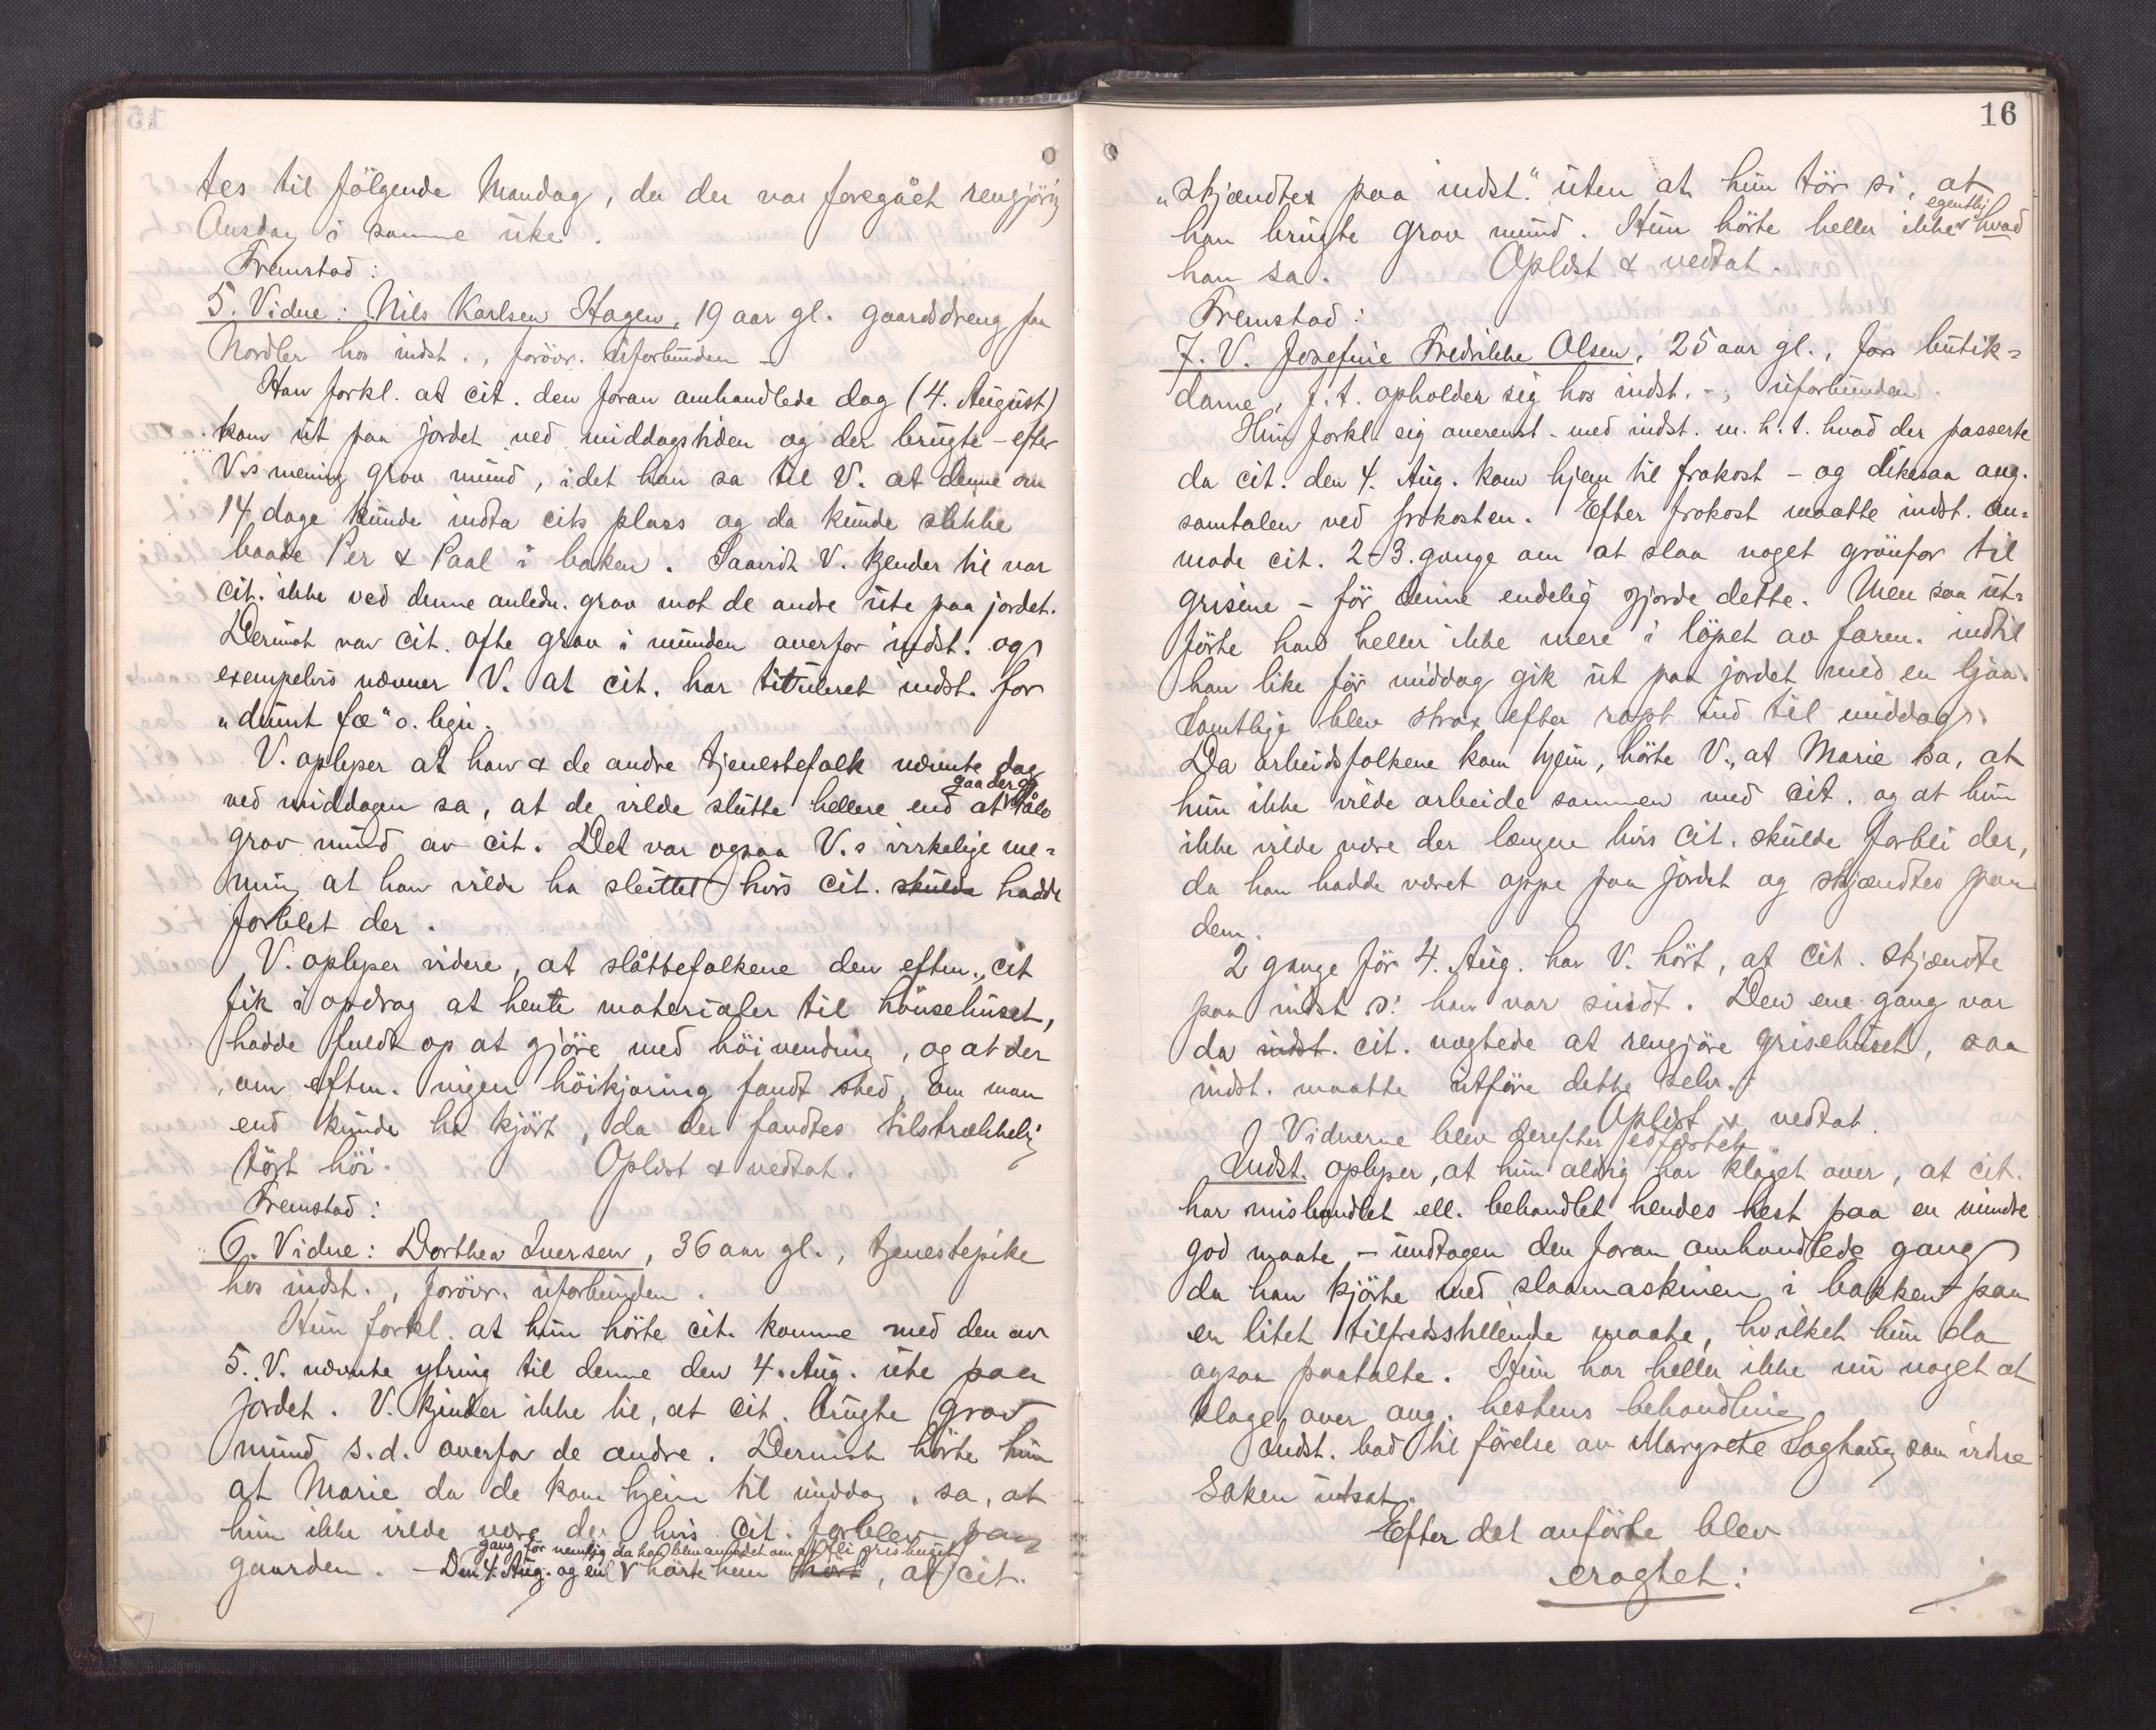 tes til følgende Mandag, da der var foregået rengjöring
Onsdag i samme uke.
Fremstod:
5. Vidne: Nils Karlsen Hagen, 19 aar gl. gaardsdreng paa
Nordler hos indst., forövr. uforbunden -
Han forkl. at cit. den foran omhandlede dag (4. August)
kom ut paa jordet ved middagstiden og der brugte - efter
V.s mening grov mund, idet han sa til V. at denne om
14 dage kunde indta cits plass og da kunde slikke
baade Per & Paal i baken. Saavidt V. kjender til var
cit. ikke ved denne anledn. grov mot de andre ute paa jordet.
Derimot var cit. ofte grov i munden overfor indst. og
exempelvis nævner V. at cit. har tituleret indst. for
"dumt fæ" o. lign.
V. oplyser at han & de andre tjenestefolk nævnte dag
ved middagen sa, at de vilde slutte hellere end at gaa der og tåle
grov mund av cit. Det var ogsaa V.s virkelige me-
ning at han vilde ha sluttet hvis cit. skulde hadde
forblet der.
V. oplyser videre, at slåttefolkene den efterm., cit
fik i opdrag at hente materialer til hönsehuset,
hadde fuldt op at gjöre med höivending, og at der
om efterm. ingen höikjöring fandt sted, om man
end kunde ha kjört, da der fandtes tilstrækkelig
tört höi. Oplæst & vedtat.
Fremstod:
6. Vidne: Dorthea Iversen, 36 aar gl., tjenestepike
hos indst., forövr. uforbunden.
Hun forkl. at hun hörte cit. komme med den av
5. V. nævnte ytring til denne den 4. Aug. ute paa
jordet. V. kjender ikke til, at cit. brugte grov
mund s.d. overfor de andre. Derimot hörte hun
at Marie da de kom hjem til middag, sa, at
hun ikke vilde være der hvis cit. forblev paa
gang för nemlig da han blev anmodet om at fli grishuset
gaarden. - Den 4. Aug. og en V hörte hun hört, at cit.
16
"skjændtes paa indst." uten at hun tör si, at
han brugte grov mund. Hun hörte heller ikke egentlig hvad
han sa. Oplæst & vedtat.
Fremstod:
7. V. Josefine Fredrikke Olsen, 25 aar gl., för butik-
dame, f.t. opholder sig hos indst. -, uforbunden.
Hun forkl. sig overenst. med indst. m.h.t. hvad der passerte
da cit. den 4. Aug. kom hjem til frokost - og likesaa ang.
samtalen ved frokosten. Efter frokost maatte indst. an-
mode cit. 2-3. gange om at slaa noget grönfor til
grisene - för denne endelig gjorde dette. Men saa ut-
förte han heller ikke mere i löpet av form. indtil
han like för middag gik ut paa jordet med en ljaa.
Samtlige blev strax efter ropt ind til middag.
Da arbeidsfolkene kom hjem, hörte V., at Marie sa, at
hun ikke vilde arbeide sammen med cit. og at hun
ikke vilde være der længere hvis cit. skulde forbli der,
da han hadde været oppe paa jordet og skjændtes paa
dem.
2 gange för 4. Aug. har V. hört, at cit. skjændte
paa indst. D: han var sindt. Den ene gang var
da indst. cit. nægtede at rengjöre grisehuset, saa
indst. maatte utföre dette selv.
Oplæst & vedtat.
Vidnerne blev derefter edfæstet.
Indst. oplyser, at hun aldrig har klaget over, at cit.
har mishandlet ell. behandlet hendes hest paa en mindre
god maate - undtagen den foran omhandlede gang
da han kjörte med slaamaskinen i bakken paa
en litet tilfredsstillende maate, hvilket hun da
ogsaa paatalte. Hun har heller ikke nu noget at
klage over ang. hestens behandling.
Indst. bad til förelse av Margrete Soghaug som vidne
Saken utsat.
Efter det anförte blev
eragtet: